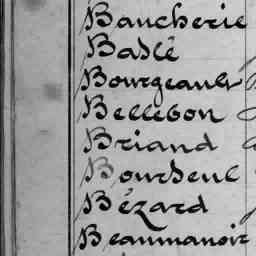 Baucherie
Baslé
Bourgeault
Bellebon
Briand
Bourseul
Bézard
Beaumanoir